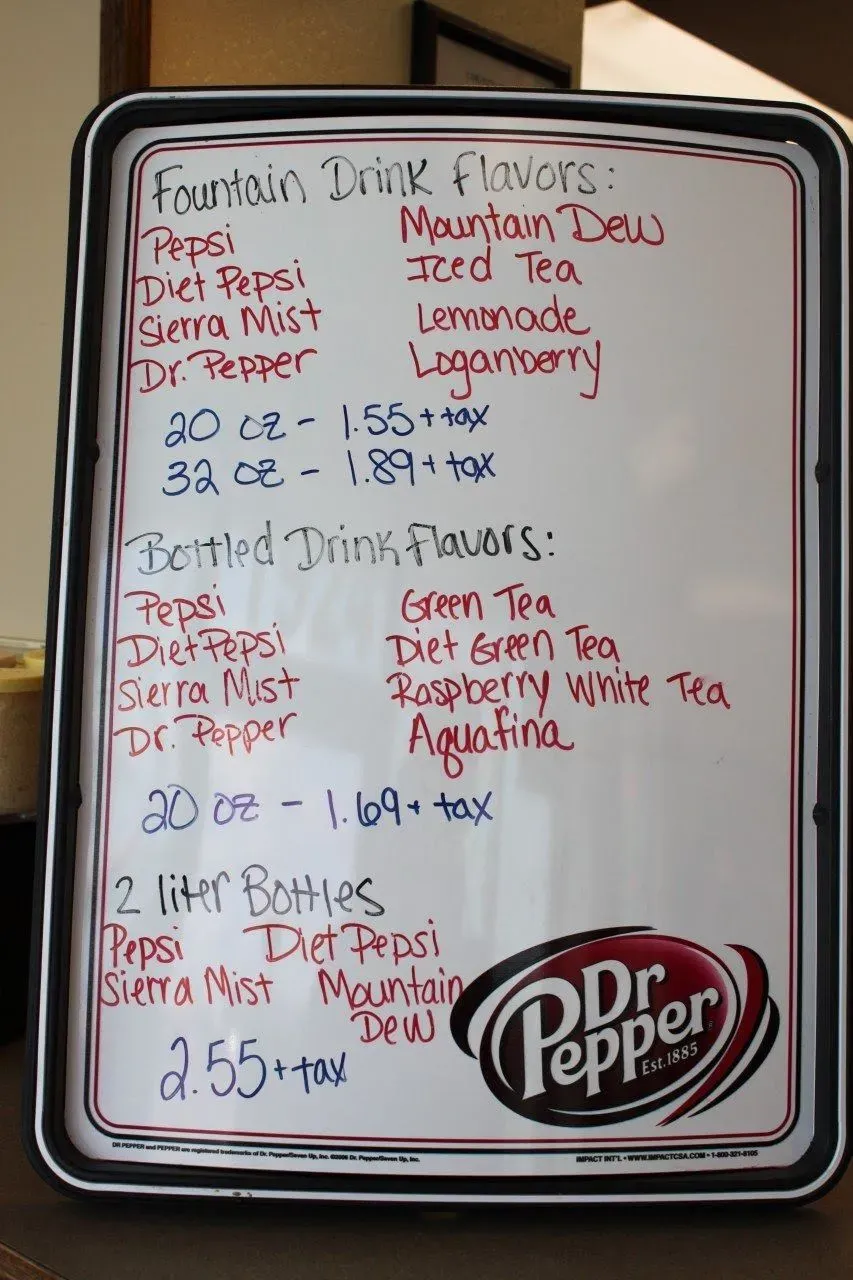 Fountain Drink Flavors:
Pepsi Mountain Dew
Diet Pepsi Iced Tea
Sierra Mist Lemonade
Dr. Pepper Loganberry
20 oz - 1.55 + tax
32 oz - 1.89 + tax
Bottled Drink Flavors:
Pepsi Green Tea
Diet Pepsi Diet Green Tea
Sierra Mist Raspberry White Tea
Dr. Pepper Aquafina
20 oz - 1.69 + tax
2 liter Bottles
Pepsi Diet Pepsi
Sierra Mist Mountain
Dew
2.55 + tax
Dr
Pepper
Est. 1885
DR PEPPER and PEPPER are registered trademarks of Dr. Pepper/Seven Up, Inc. ©2006 Dr. Pepper/Seven Up, Inc.
IMPACT INT'L • WWW.IMPACTCSA.COM • 1-800-321-8105